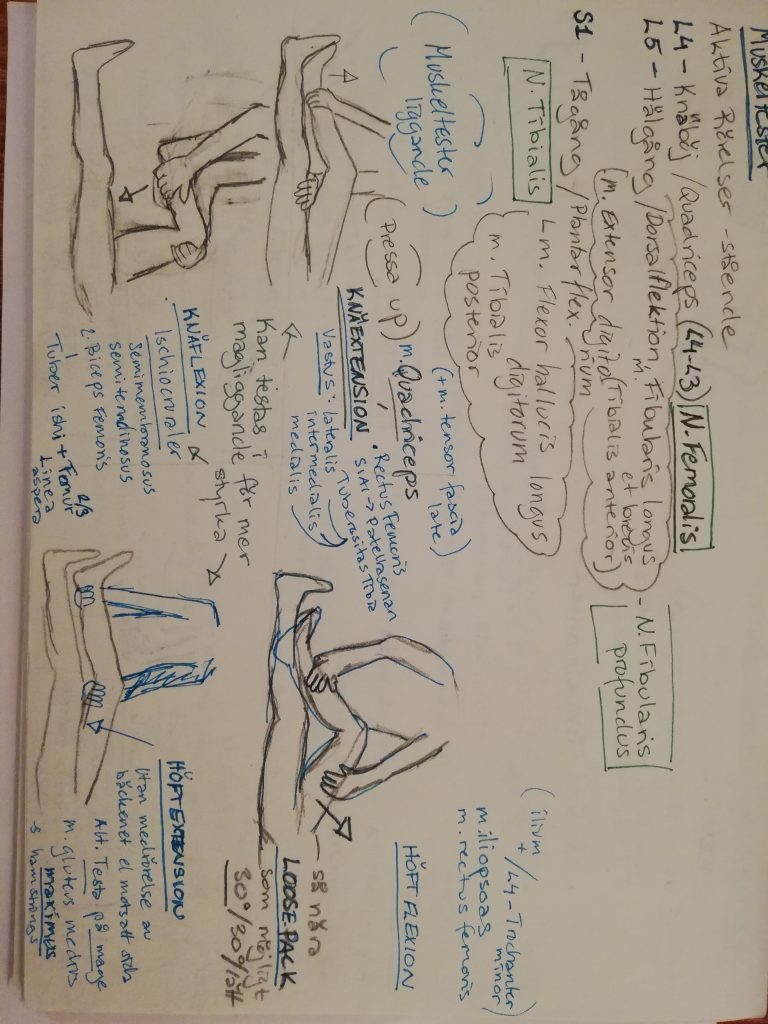 Muskeltester
Aktiva Rörelser - stående
L4 - Knäböj / Quadriceps (L4-L3) N. Femoralis
L5 - Hälgång / Dorsalflektion, m. Fibularis longus
et brevis
(m. Extensor digito
rum
Tibialis anterior)
- N. Fibularis
profundus
S1 - Tågång / Plantarflex.
N. Tibialis
L m. Flexor hallucis longus
digitorum
m. Tibialis
posterior
(Muskeltester
liggande)
(Pressa up)
KNÄEXTENSION
m. Quadriceps
(+ m. tensor fascia
late)
• Rectus Femoris
SIAI → Patellarsenan
Tuberositas Tibia
Vastus: lateralis
intermedialis
medialis
Kan testas i
magliggande för mer
styrka
KNÄFLEXION
Ischiocruraler
Semimembranosus
semitendinosus
2. Biceps Femoris
Tuber ishi + Femur 2/3
Linea
aspera
HÖFTFLEXION
(ilium
+ /L4 - Trochanter
minor)
m. iliopsoas
m. rectus femoris
så nära
LOOSE PACK
som möjligt
30°/30°/lätt
HÖFTEXTENSION
Utan medrörelse av
bäckenet el motsatt sida
Alt. Testa på mage
m. gluteus medius
maximus
s hamstrings